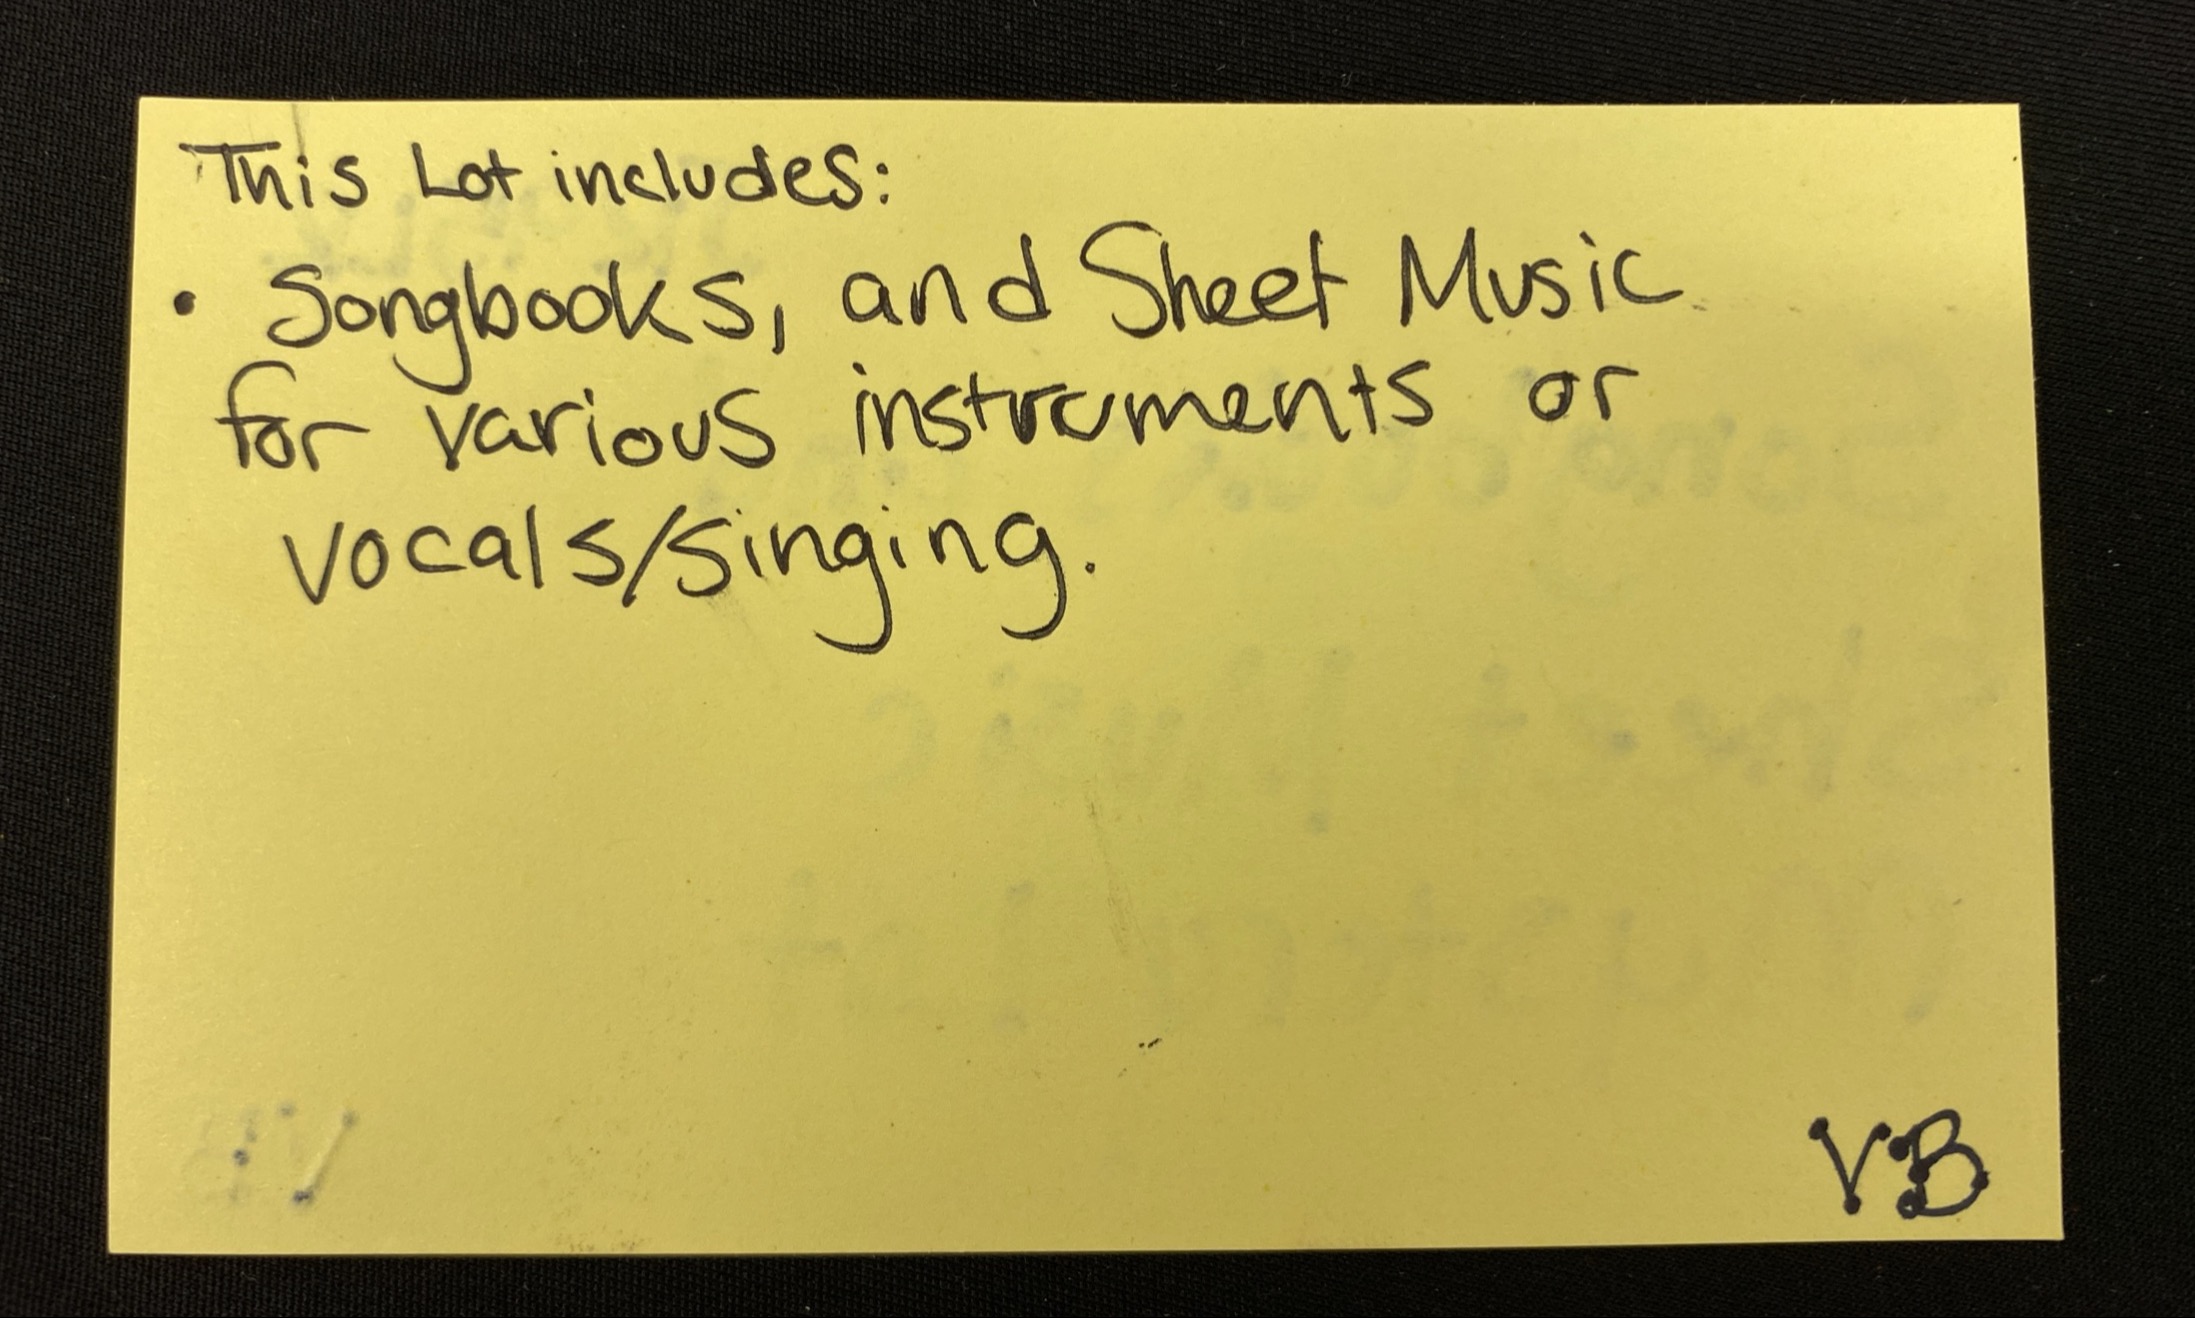 This Lot includes:
• Songbooks, and Sheet Music
for various instruments or
vocals/singing.
VB